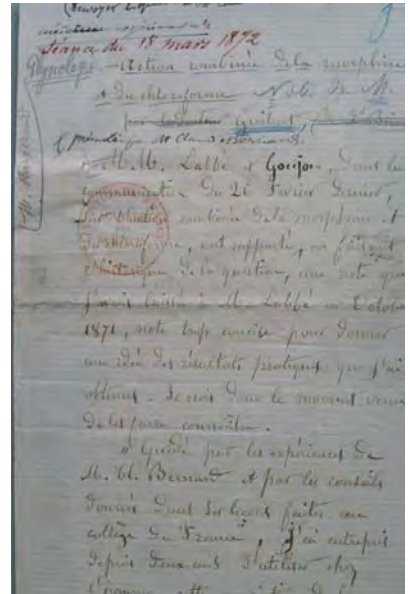 Séance du 18 mars 1872
Physiologie. — Action combinée de la morphine
& du chloroforme Note de M.
Guibert,
présentée par M. Claude Bernard.
M.M. Labbé et Goujon, dans leur
communication du 26 Février dernier,
sur l'action combinée de la morphine et
du chloroforme, ont rapporté, en faisant
l'historique de la question, une note que
j'avais laissée à M. Labbé en Octobre
1871, note trop concise pour donner
une idée des résultats pratiques que j'ai
obtenus. Je crois donc le moment venu
de les faire connaître.
" Guidé par les expériences de
M. Cl. Bernard & par les conseils
donnés dans ses leçons faites au
collège de France, j'ai entrepris
depuis deux ans d'utiliser chez
l'homme cette